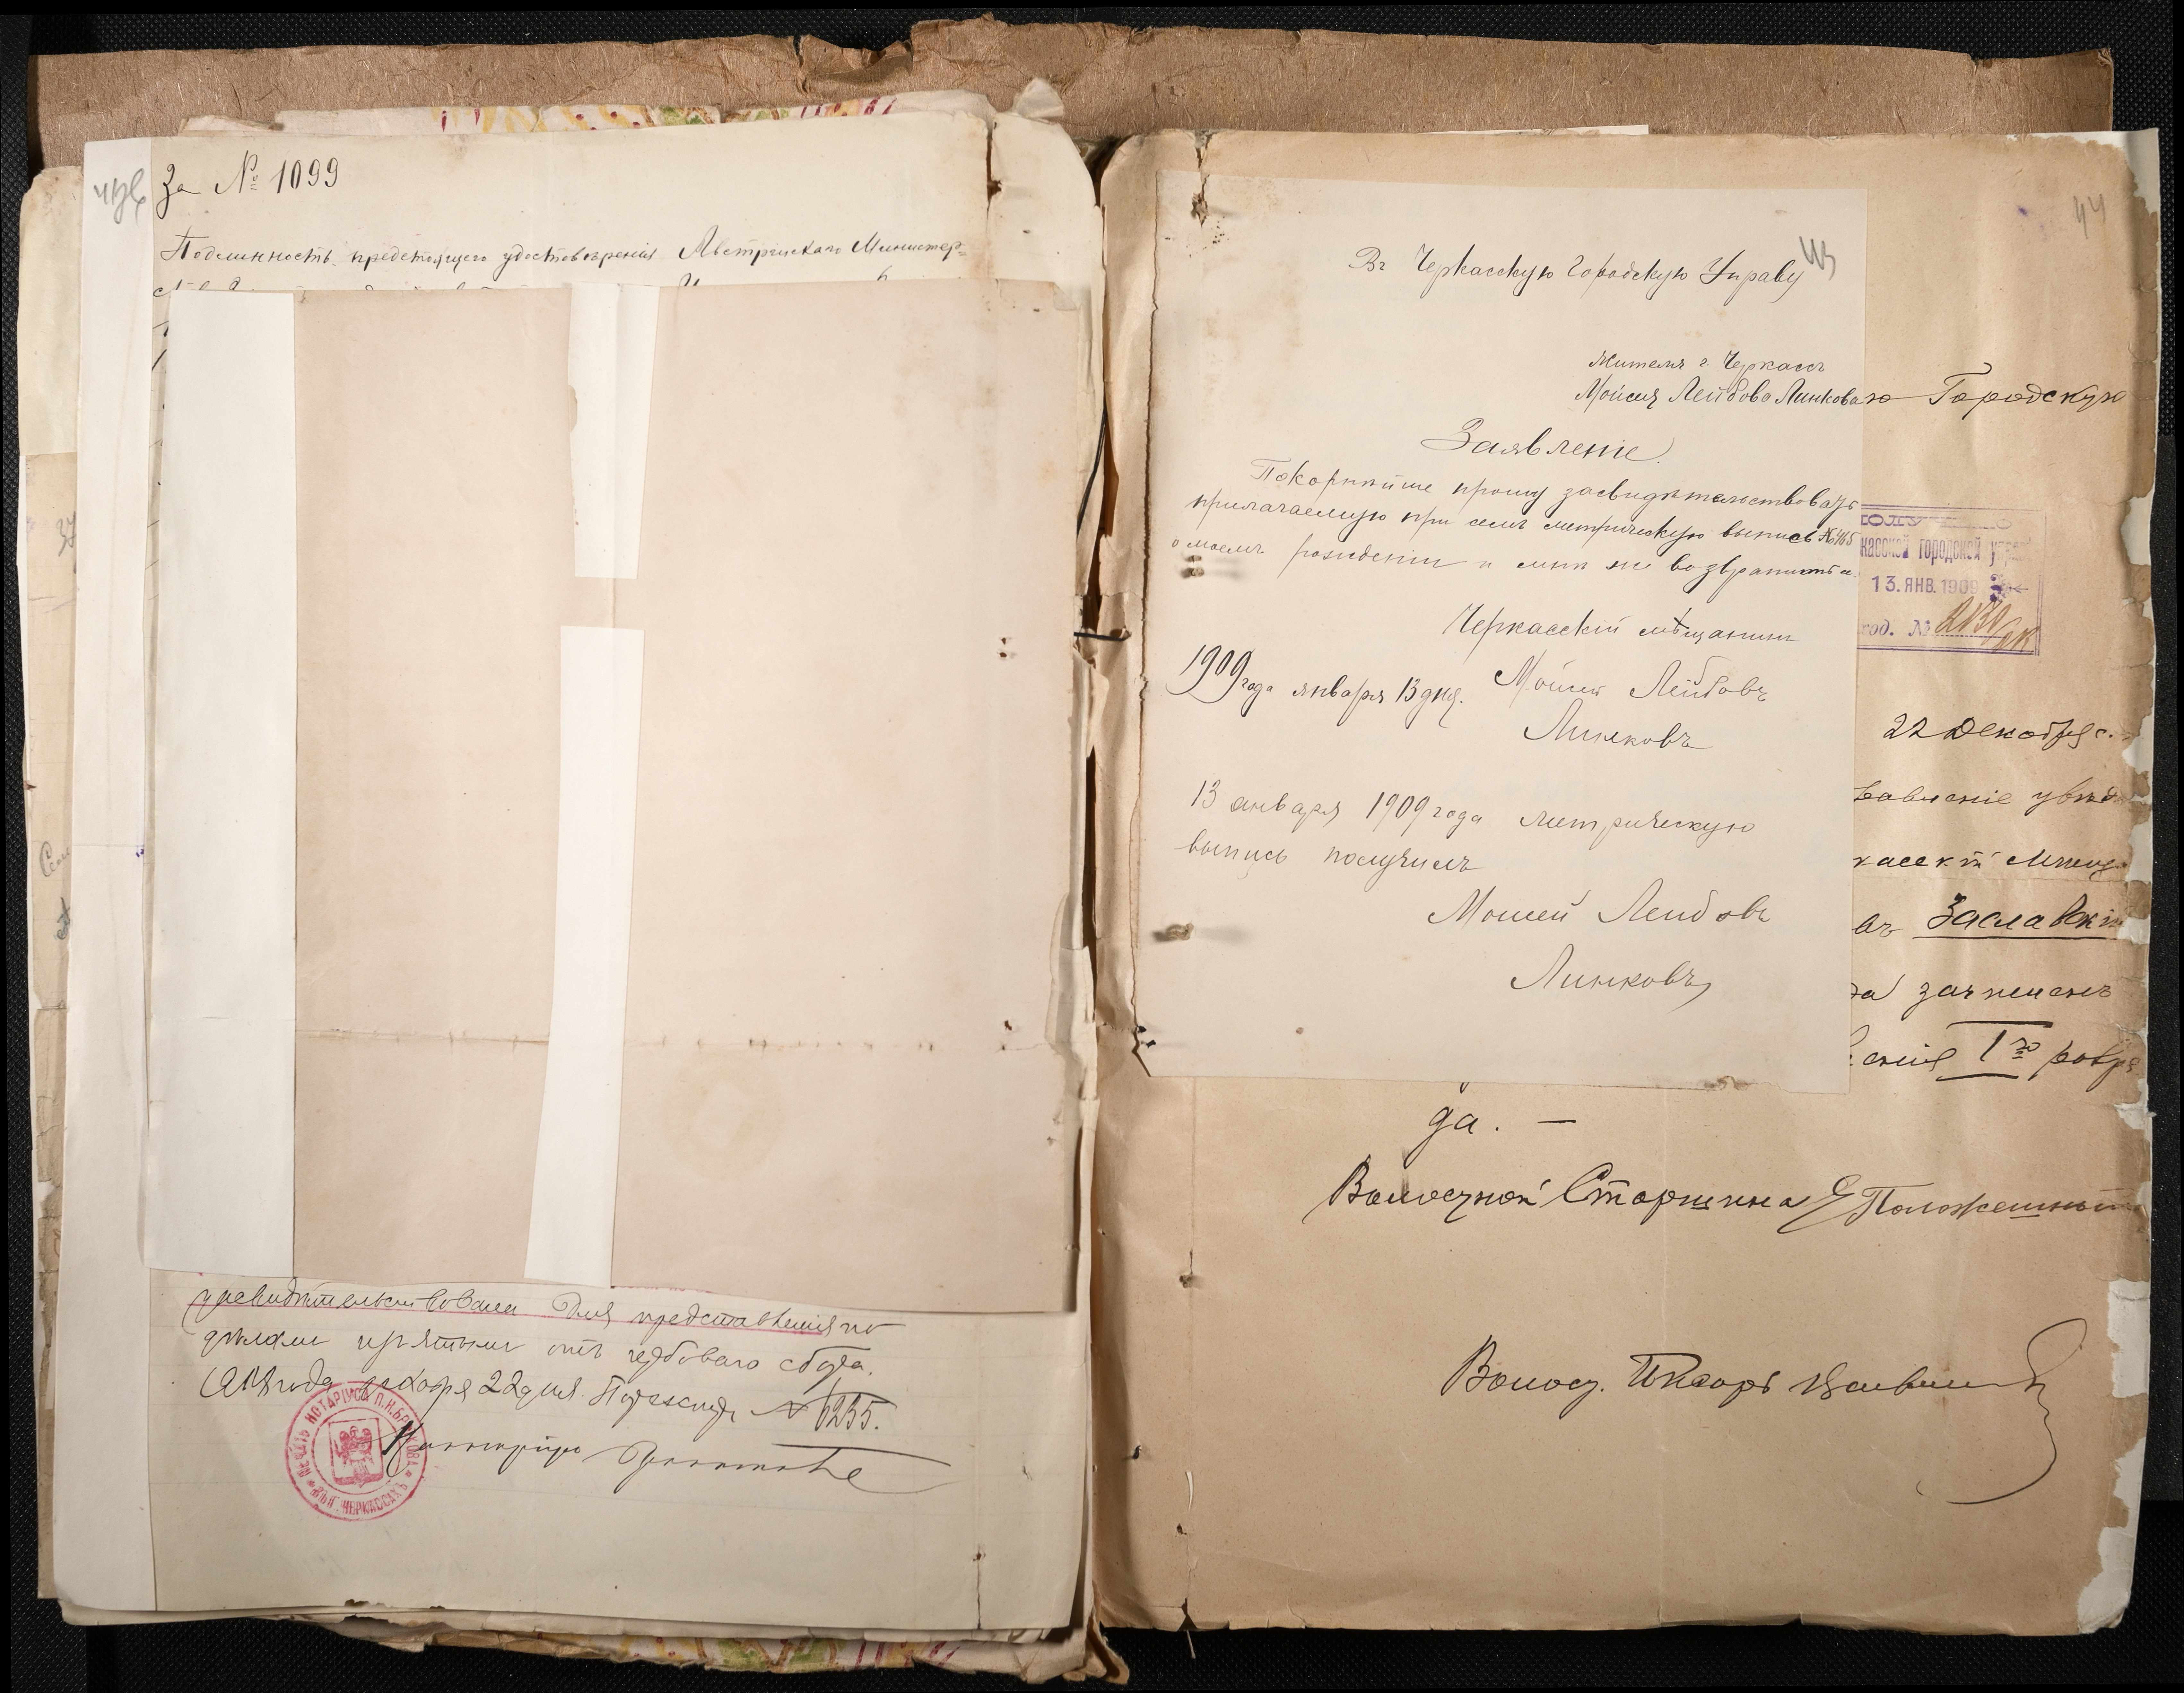 За № 1099
Подлинность предстоящего удостоверенія Австрійскаго Министер-
засвидѣтельствована для представленія по
дѣламъ изъятымъ отъ гербоваго сбора.
года декабря 22 дня. По реестру № 6255.
Нотаріусъ
ПЕЧАТЬ НОТАРІУСА П.Н.
ВЪ Г. ЧЕРКАССАХЪ
43
Въ Черкасскую Городскую Управу
Жителя г. Черкассъ
Мойсея Лейбова Линкова
Заявленіе.
Покорнѣйше прошу засвидѣтельствовать
прилагаемую при семъ метрическую выпись № 465
о моемъ рожденіи и мнѣ же возвратить.
Черкасскій мѣщанинъ
1909 года января 13 дня. Мойсей Лейбовъ
Линковъ
13 января 1909 года метрическую
выпись получилъ
Мошей Лейбовъ
Линковъ
44
ю Городскую
касской городской упра
13. ЯНВ. 1909
ход. №
22 Декабря с.
касскій мѣщ
въ Заславскій
да зачисленъ
енія I го разря
да. —
Волостной Старшина Положешный
Волост. Писарь